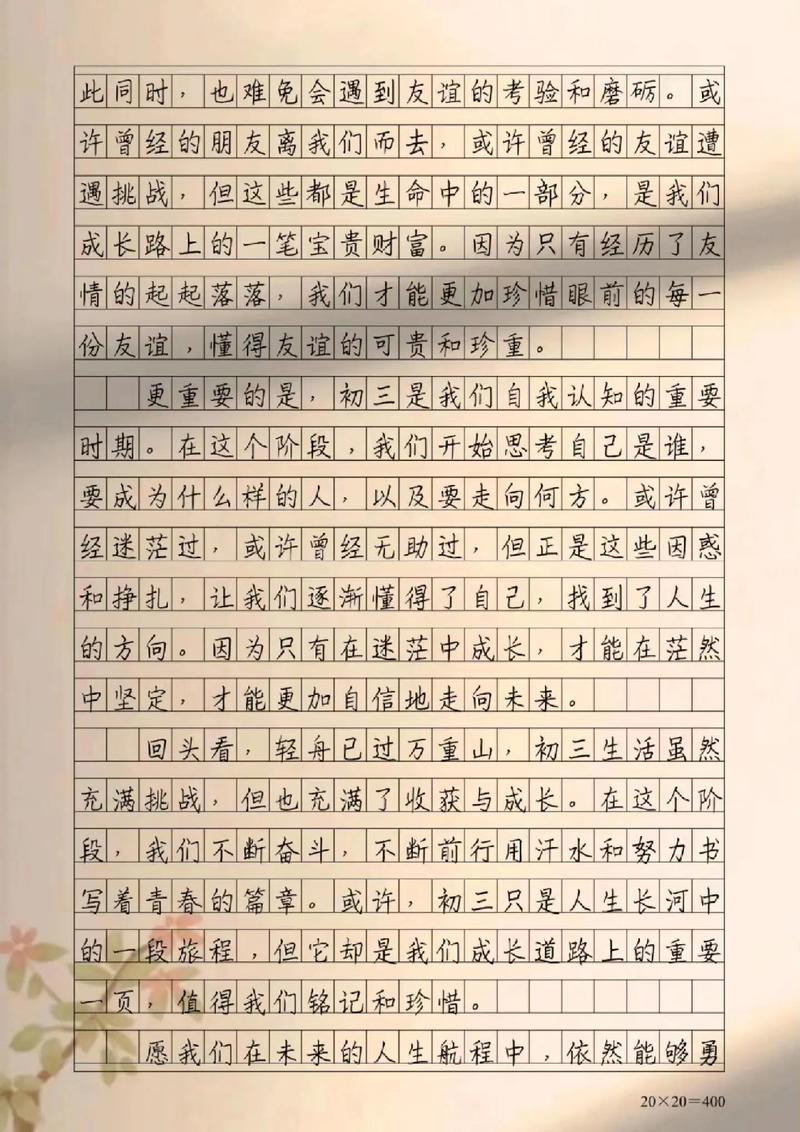 此同时，也难免会遇到友谊的考验和磨砺。或
许曾经的朋友离我们而去，或许曾经的友谊遭
遇挑战，但这些都是生命中的一部分，是我们
成长路上的一笔宝贵财富。因为只有经历了友
情的起起落落，我们才能更加珍惜眼前的每一
份友谊，懂得友谊的可贵和珍重。
更重要的是，初三是我们自我认知的重要
时期。在这个阶段，我们开始思考自己是谁，
要成为什么样的人，以及要走向何方。或许曾
经迷茫过，或许曾经无助过，但正是这些困惑
和挣扎，让我们逐渐懂得了自己，找到了人生
的方向。因为只有在迷茫中成长，才能在茫然
中坚定，才能更加自信地走向未来。
回头看，轻舟已过万重山，初三生活虽然
充满挑战，但也充满了收获与成长。在这个阶
段，我们不断奋斗，不断前行用汗水和努力书
写着青春的篇章。或许，初三只是人生长河中
的一段旅程，但它却是我们成长道路上的重要
一页，值得我们铭记和珍惜。
愿我们在未来的人生航程中，依然能够勇
20×20=400